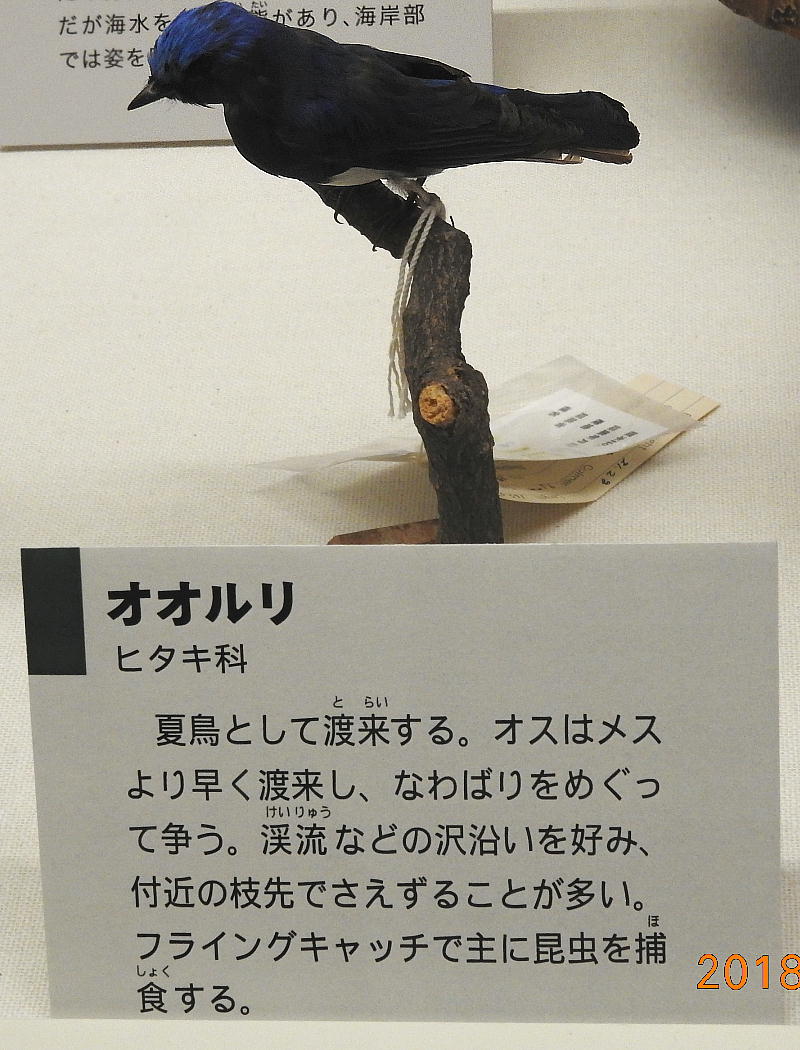 だが海水を
があり、海岸部
では姿を
オオルリ
ヒタキ科
夏鳥として渡来する。オスはメス
より早く渡来し、なわばりをめぐっ
て争う。渓流などの沢沿いを好み、
付近の枝先でさえずることが多い。
フライングキャッチで主に昆虫を捕
食する。
2018